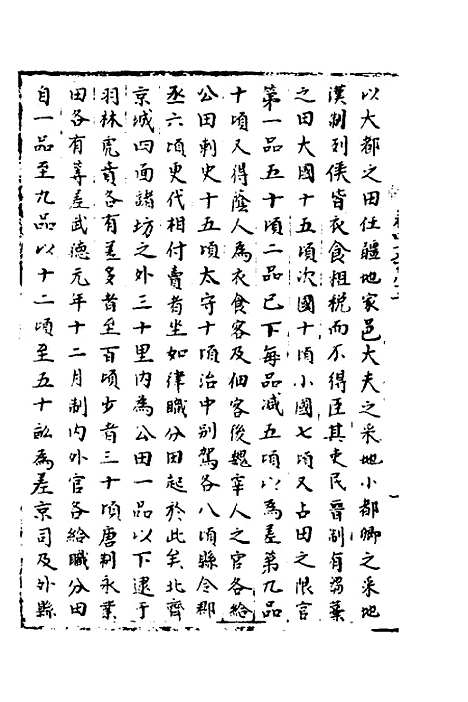 以大都之田任疆地家邑大夫之采地小都卿之采地
漢制列侯皆衣食租税而不得臣其吏民晉制有芻藁
之田大國十五頃次國十頃小國七頃又占田之限官
第一品五十頃二品已下每品减五頃以為差第九品
十頃又得蔭人為衣食客及佃客後魏宰人之官各給
公田刺史十五頃太守十頃治中别駕各八頃縣令郡
丞六頃更代相付賣者坐如律職分田起於此矣北齊
京城四面諸坊之外三十里内為公田一品以下逮于
羽林虎賁各有差多者至百頃少者三十頃唐制永業
田各有等差武德元年十二月制内外官各給職分田
自一品至九品以十二頃至五十畝為差京司及外縣